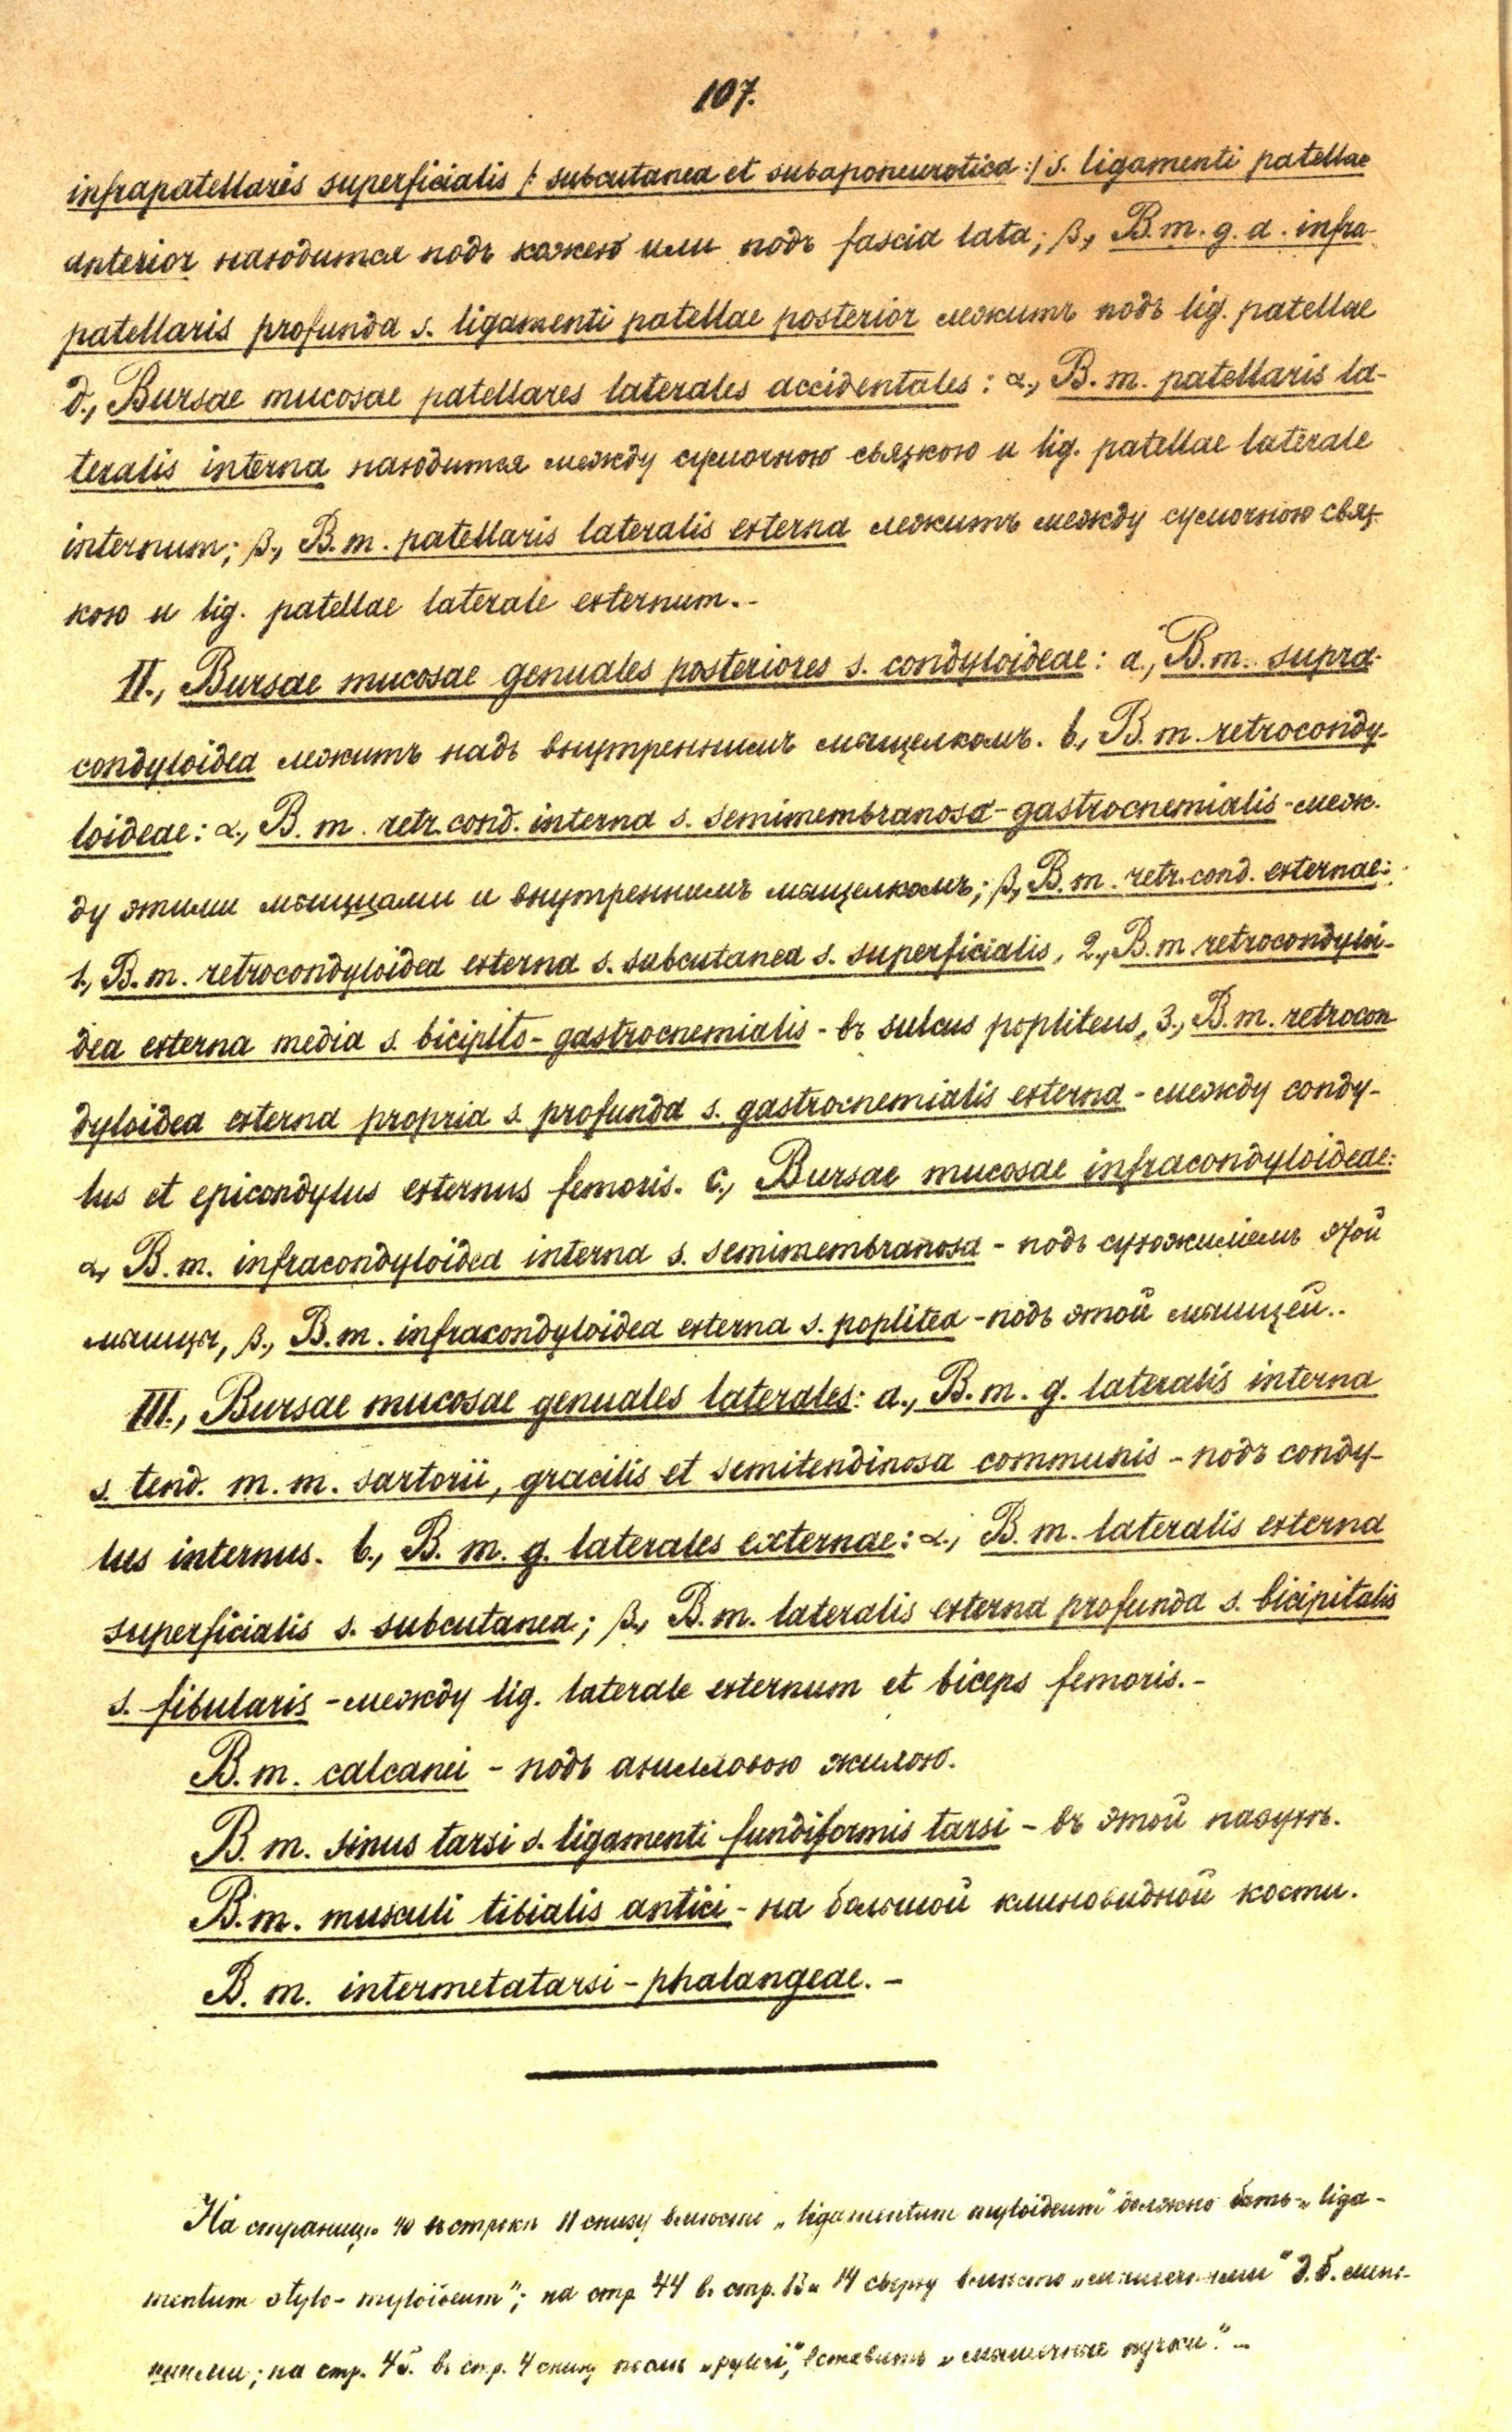 107.
infrapatellaris superficialis /: subcutanea et subaponeurotica :/ s. ligamenti patellae
anterior находится подъ кожею или подъ fascia lata; β., B. m. g. a. infra-
patellaris profunda s. ligamenti patellae posterior лежитъ подъ lig. patellae
d., Bursae mucosae patellares laterales accidentales: α., B. m. patellaris la-
teralis interna находится между сумочною связкою и lig. patellae laterale
internum; β., B. m. patellaris lateralis externa лежитъ между сумочною связ-
кою и lig. patellae laterale externum.-
II., Bursae mucosae genuales posteriores s. condyloideae: a., B. m. supra-
condyloidea лежитъ надъ внутреннимъ мыщелкомъ. b., B. m. retrocondy-
loideae: α., B. m. retr. cond. interna s. semimembranosa-gastrocnemialis - меж-
ду этими мышцами и внутреннимъ мыщелкомъ; β., B. m. retr. cond. externae:
1., B. m. retrocondyloidea externa s. subcutanea s. superficialis, 2., B. m. retrocondyloi-
dea externa media s. bicipito-gastrocnemialis - въ sulcus popliteus, 3., B. m. retrocon
dyloidea externa propria s. profunda s. gastrocnemialis externa - между condy-
lus et epicondylus externus femoris. c., Bursae mucosae infracondyloideae:
α., B. m. infracondyloidea interna s. semimembranosa - подъ сухожиліемъ этой
мышцы, β., B. m. infracondyloidea externa s. poplitea - подъ этой мышцей.-
III., Bursae mucosae genuales laterales: a., B. m. g. lateralis interna
s. tend. m. m. sartorii, gracilis et semitendinosa communis - подъ condy-
lus internus. b., B. m. g. laterales externae: α., B. m. lateralis externa
superficialis s. subcutanea; β., B. m. lateralis externa profunda s. bicipitalis
s. fibularis - между lig. laterale externum et biceps femoris.-
B. m. calcanei - подъ ахилловою жилою.
B. m. sinus tarsi s. ligamenti fundiformis tarsi - въ этой пазухѣ.
B. m. musculi tibialis antici - на большой клиновидной кости.
B. m. intermetatarsi-phalangeae.-
На страницѣ 40 въ строкѣ 11 снизу вмѣсто „ligamentum myloideum" должно быть „liga-
mentum stylo-myloideum"; на стр. 44 в. стр. 13 и 14 сверху вмѣсто д. б.
на стр. 45. въ стр. 4 снизу послѣ вставить „мышечные пучки."-